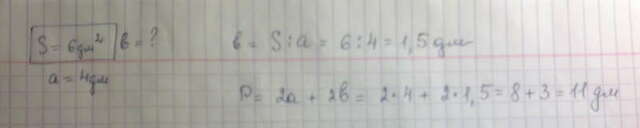 S = 6дм² в = ?
a = 4дм
в = S : a = 6 : 4 = 1,5 дм
P = 2a + 2в = 2·4 + 2·1,5 = 8 + 3 = 11 дм